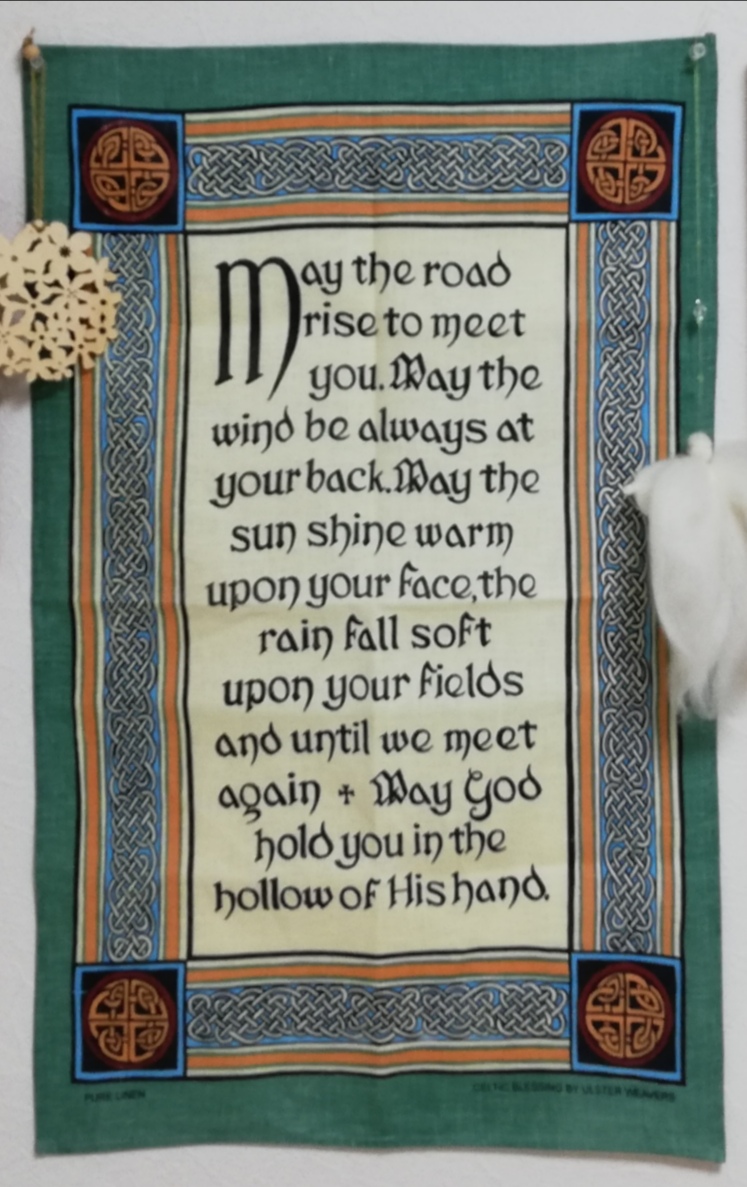 May the road
rise to meet
you. May the
wind be always at
your back. May the
sun shine warm
upon your face, the
rain fall soft
upon your fields
and until we meet
again + May God
hold you in the
hollow of His hand.
PURE LINEN
CELTIC BLESSING BY ULSTER WEAVERS